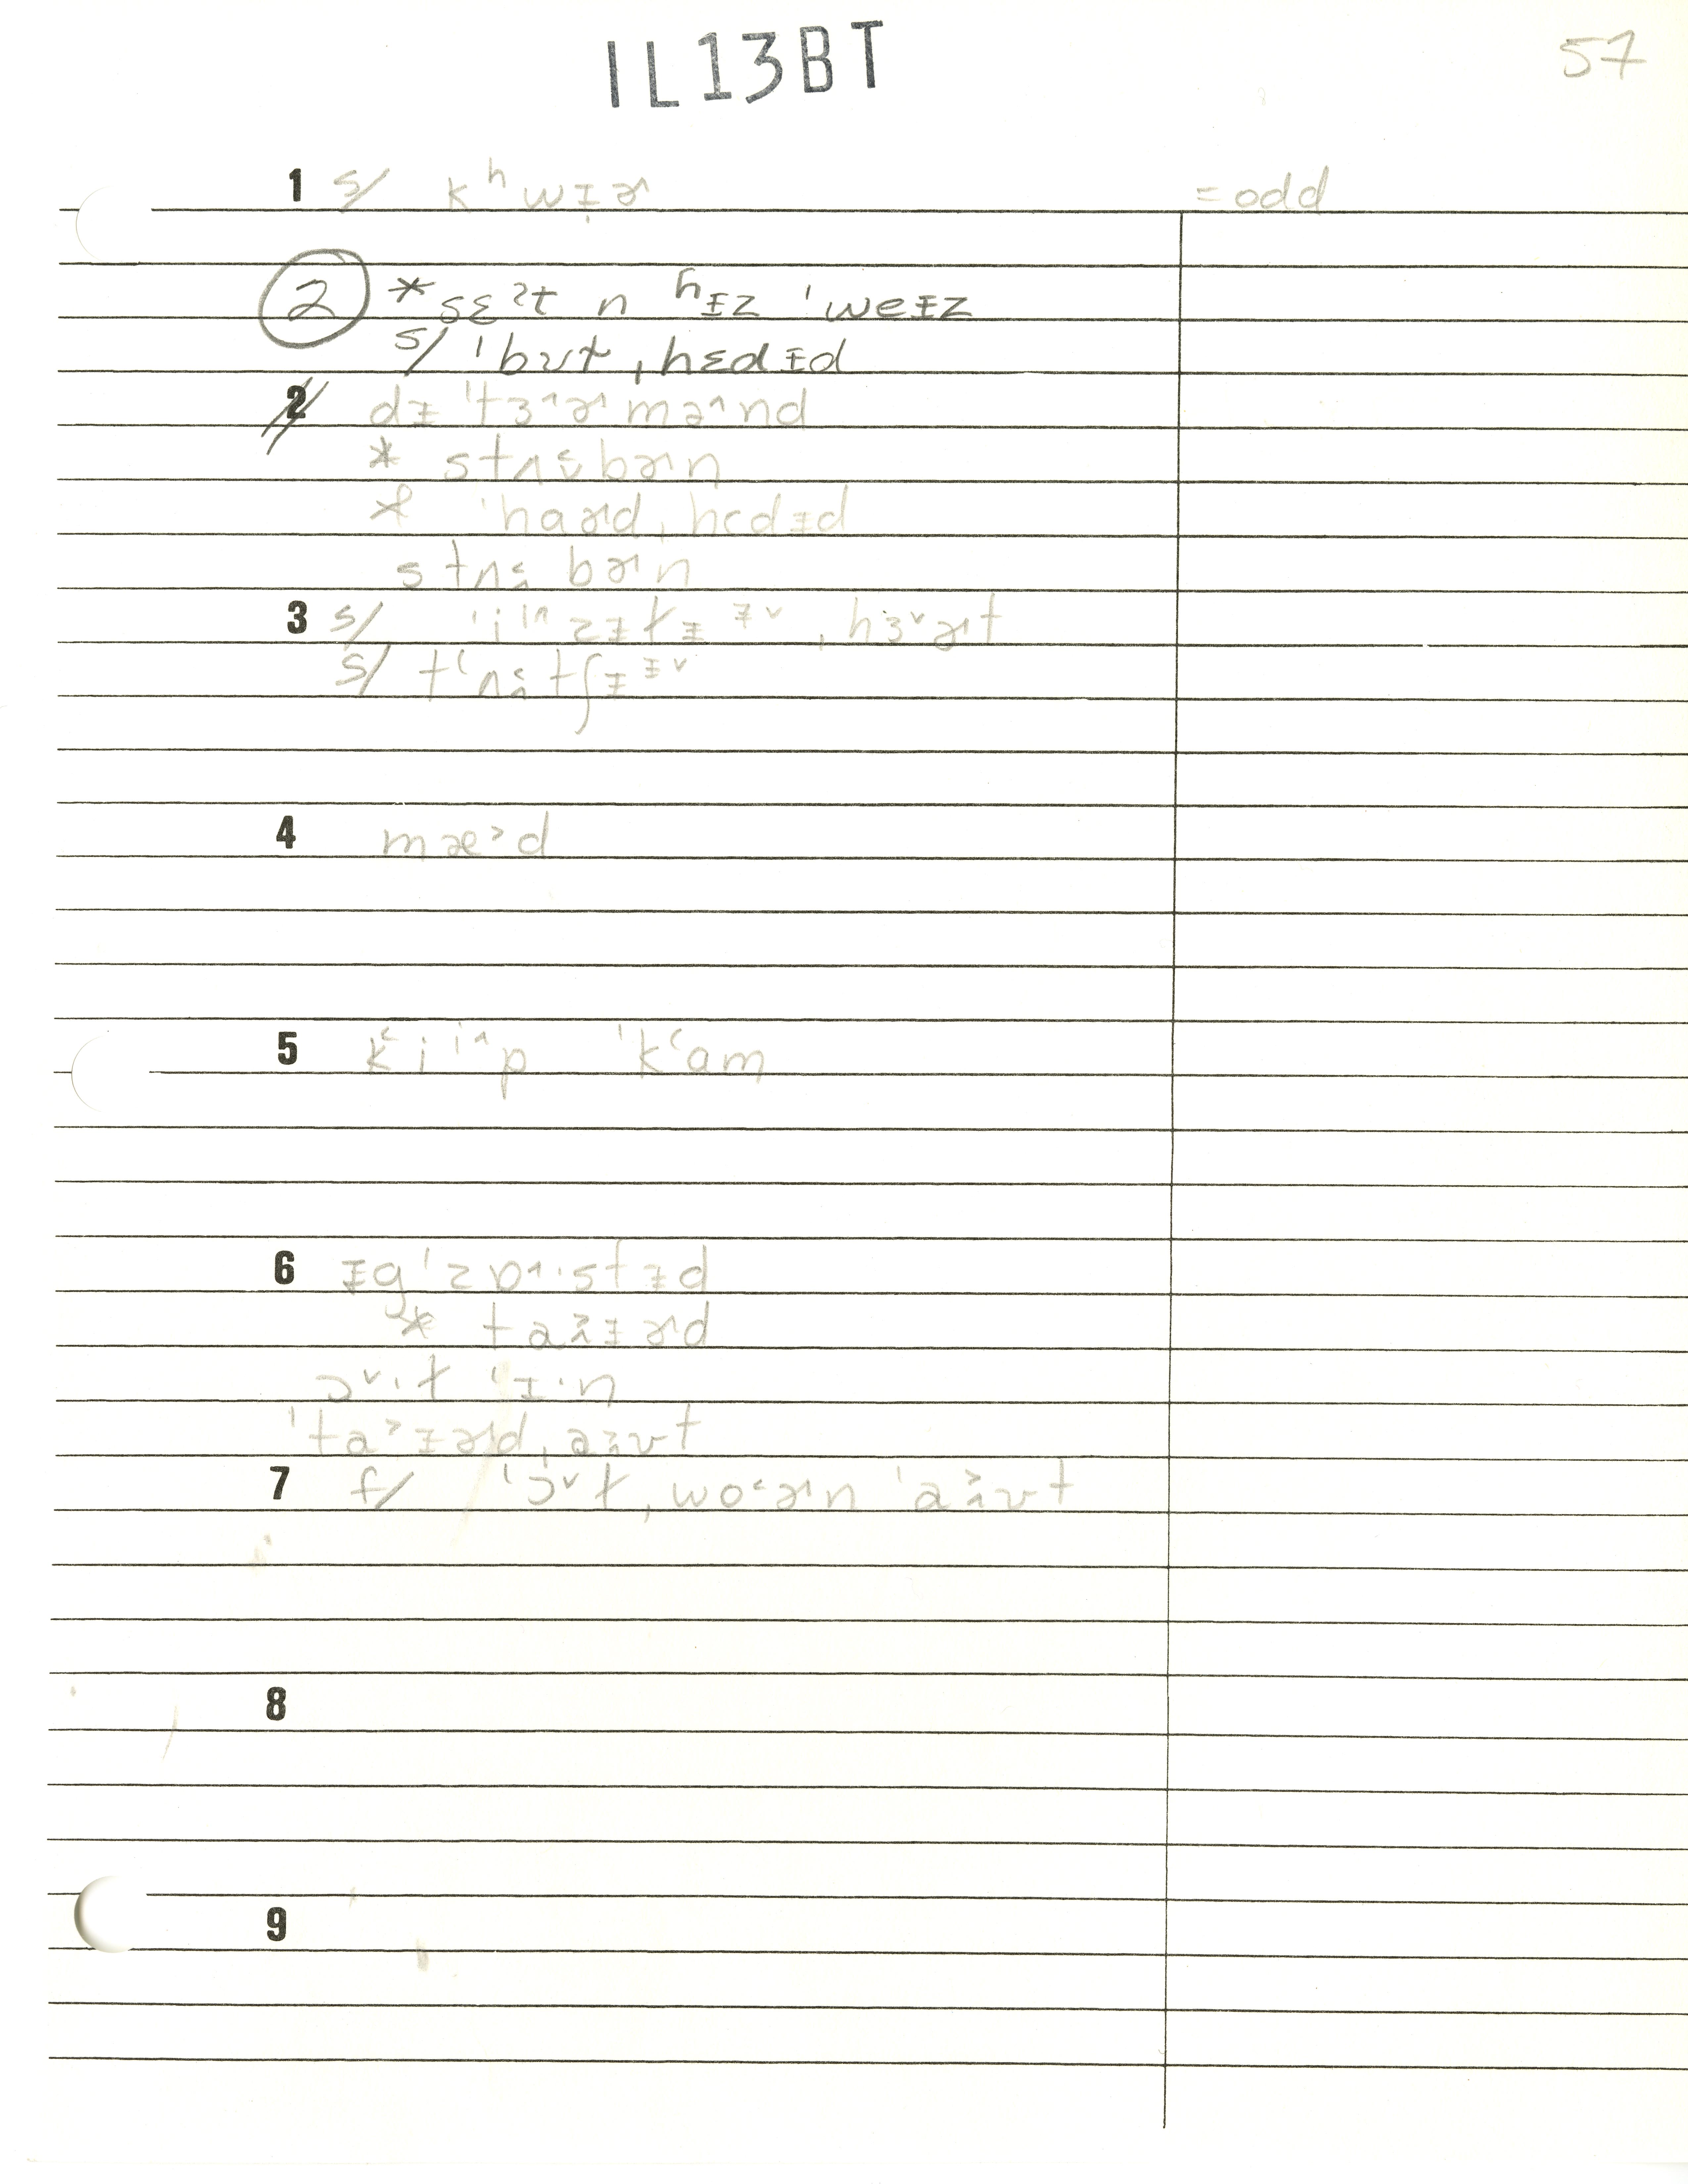 IL13BT
57
1 s/ kʰwɪɚ =odd
② *sɛˀt n hɪz ˈweɪz
s/ ˈbʊt ˌhɛdɪd
2 dɪ ˈtɜ˄ɚ˄mə˄nd
* stʌbɚn
* ˈhaɚd ˌhɛdɪd
stʌbɚn
3 s/ ˈiⁱ˄zɪtɪ ɪ˅ ˌhɜ˅ɚt
s/ tʻʌtʃɪ ɪ˅
4 mæ˃d
5 kʻiⁱ˄p ˈkʻam
6 ɪgˈzɒ˄·stɪd
* ta˃ɪɚd
ɔ˅·t ˈɪ·n
ˈta˃ɪɚd ˌa˃ʊt
7 f/ ˈɔ˅t ˌwo˂ɚn ˈa˃ʊt
8
9